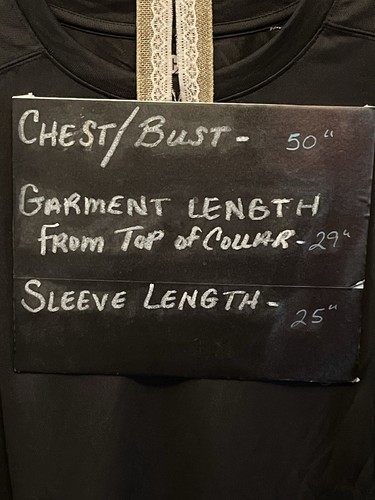 CHEST/BUST - 50"
GARMENT LENGTH
FROM TOP of COLLAR - 29"
SLEEVE LENGTH - 25"